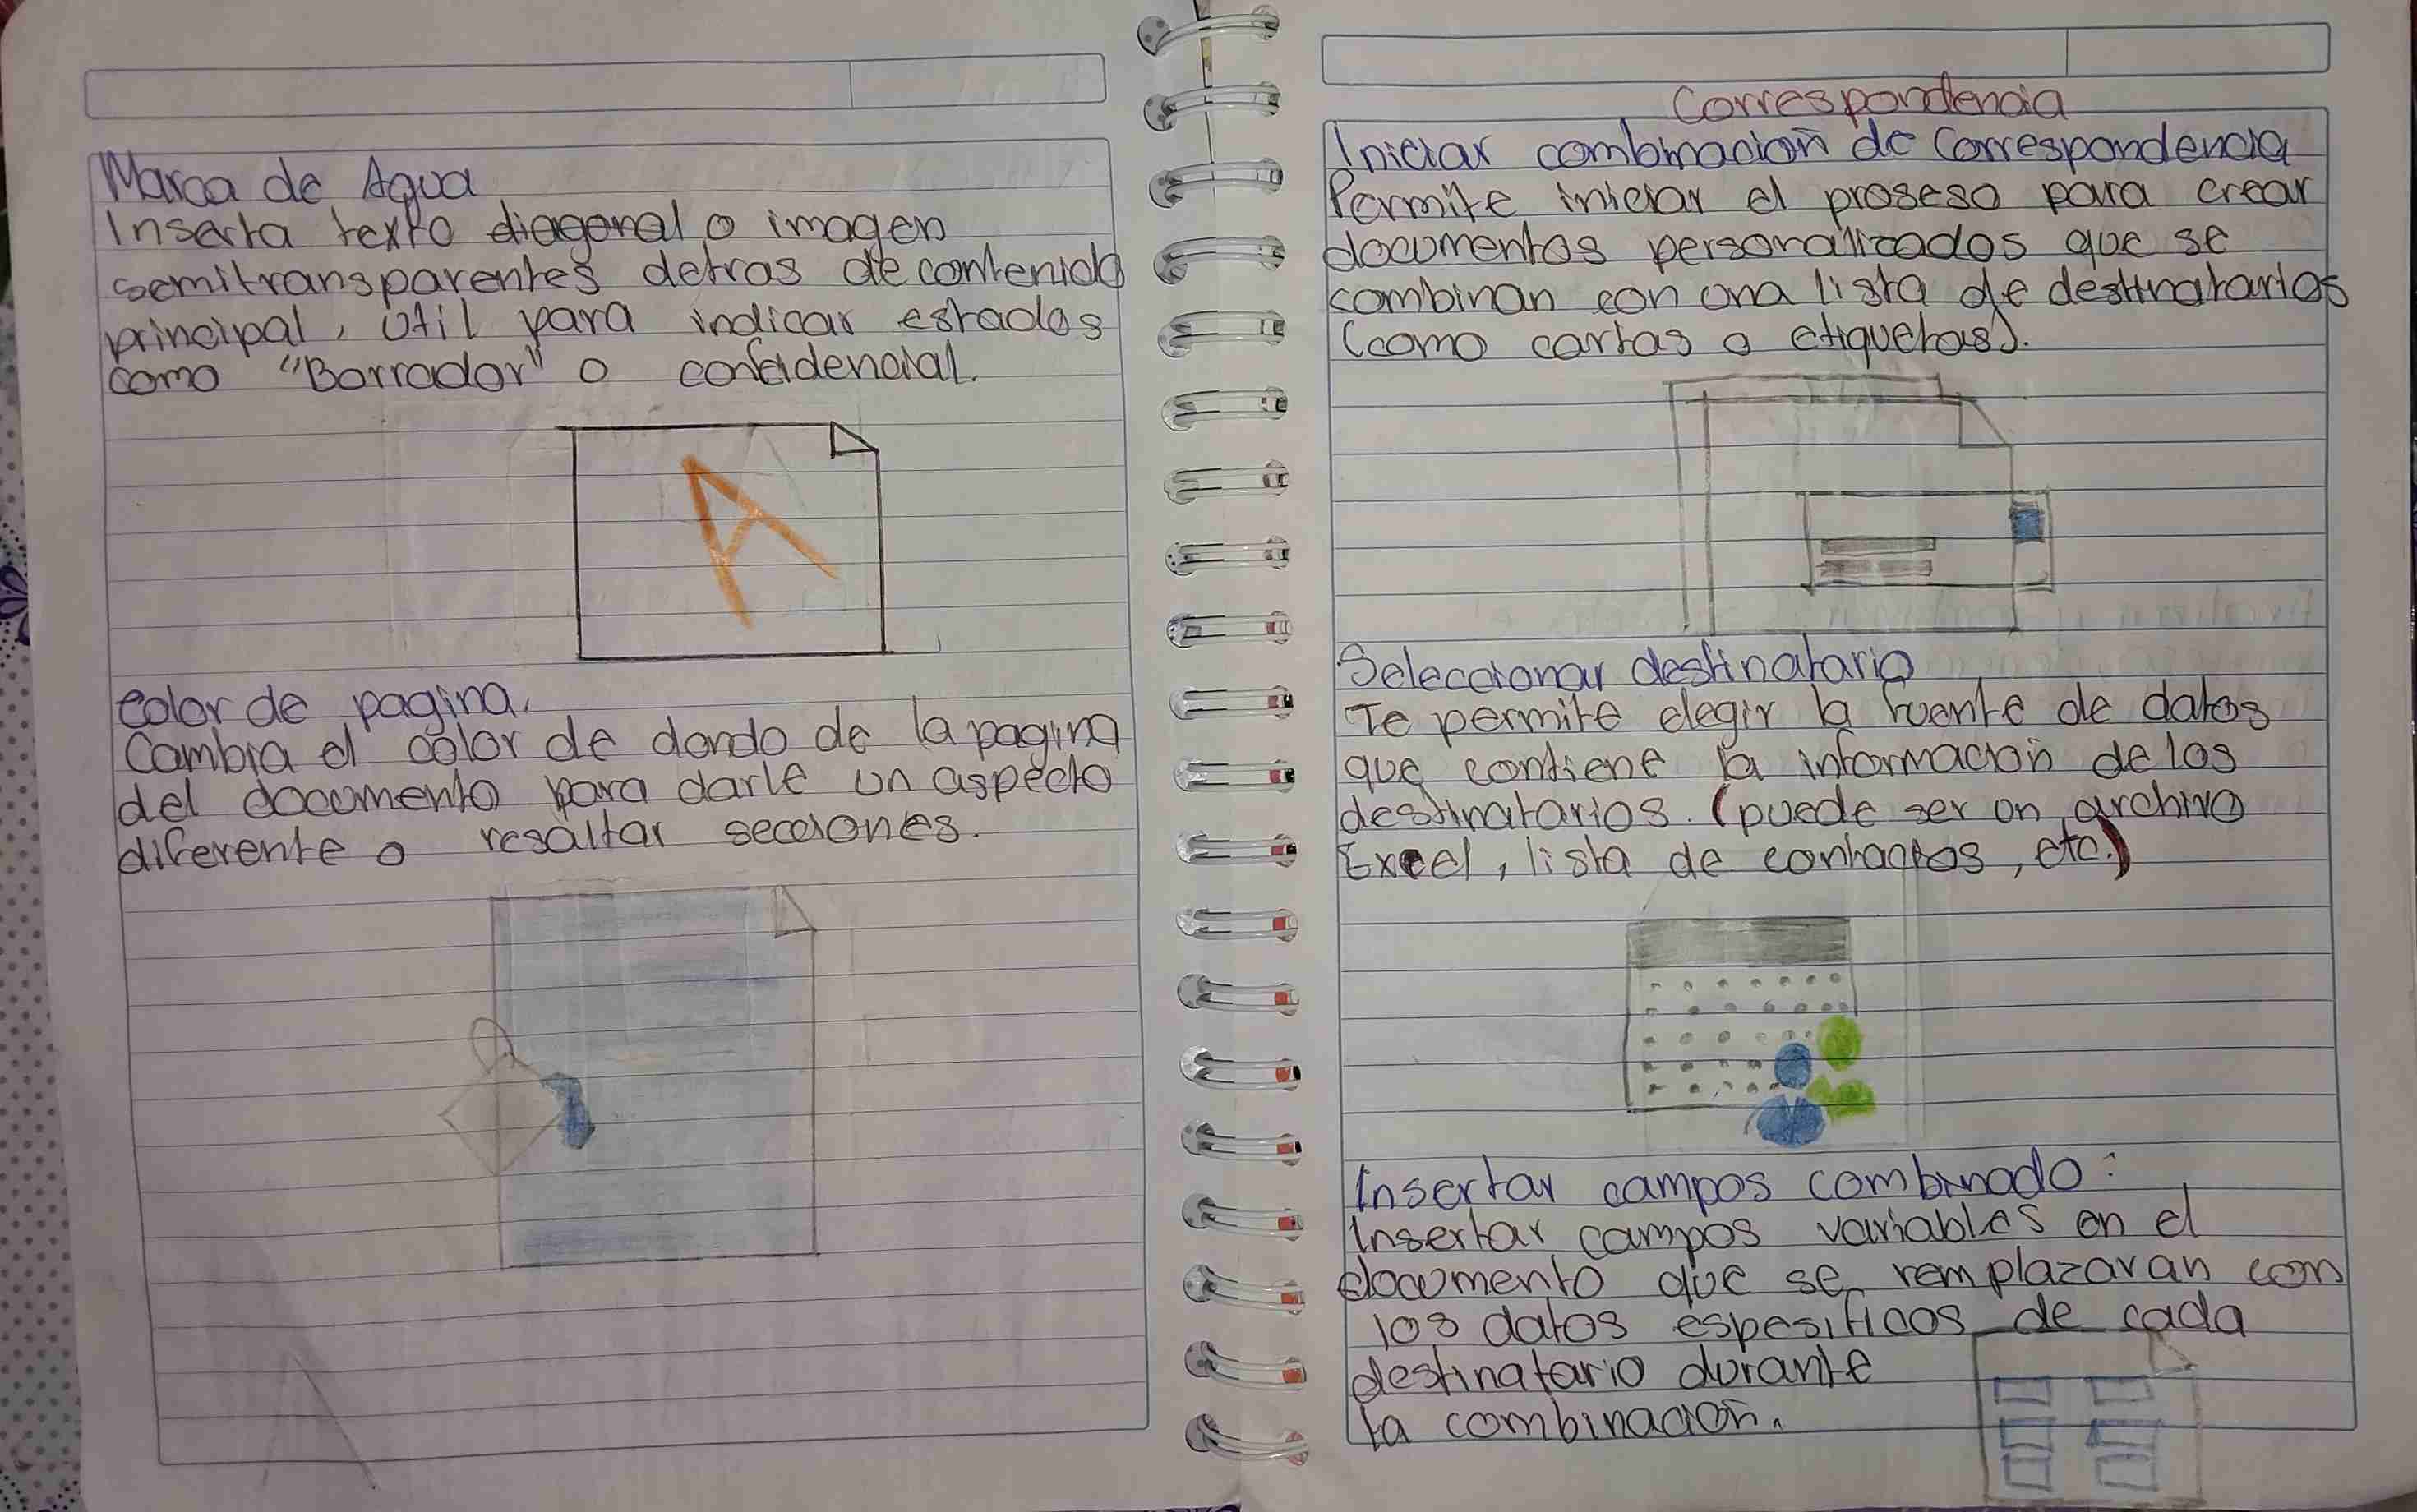 Marca de Agua
Inserta texto diagonal o imagen
semitransparentes detras de contenido
principal, útil para indicar estados
como "Borrador" o confidencial.
A
Color de pagina.
Cambia el color de dondo de la pagina
del documento para darle un aspecto
diferente o resaltar secciones.
Correspondencia
Iniciar combinacion de Correspondencia
Permite iniciar el proseso para crear
documentos personalizados que se
combinan con una lista de destinatarios
(como cartas o etiquetas).
Seleccionar destinatario
Te permite elegir la fuente de datos
que contiene la informacion de los
destinatarios. (puede ser un archivo
Excel, lista de contactos, etc.)
Insertar campos combinado:
Insertar campos variables en el
documento que se remplazaran con
los datos espesificos de cada
destinatario durante
la combinacion.